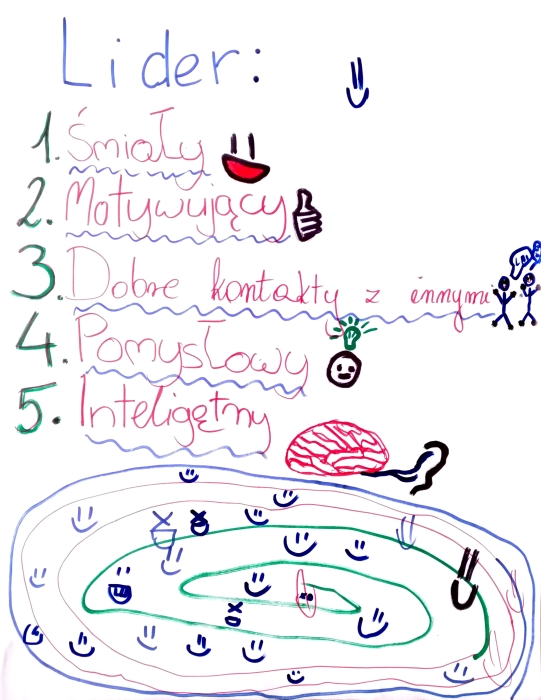 Lider:
1. Śmiały
2. Motywujący
3. Dobre kontakty z innymi
4. Pomysłowy
5. Inteligętny